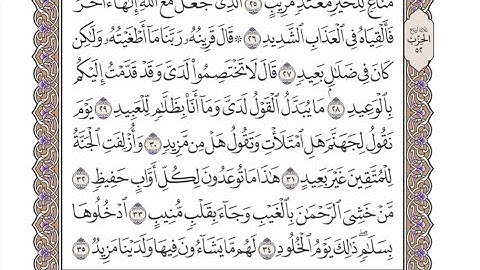 مَّنَّاعٍ لِّلْخَيْرِ مُعْتَدٍ مُّرِيبٍ ٢٥ ٱلَّذِى جَعَلَ مَعَ ٱللَّهِ إِلَٰهًا ءَاخَرَ
فَأَلْقِيَاهُ فِى ٱلْعَذَابِ ٱلشَّدِيدِ ٢٦ ۞ قَالَ قَرِينُهُۥ رَبَّنَا مَآ أَطْغَيْتُهُۥ وَلَٰكِن
كَانَ فِى ضَلَٰلٍۭ بَعِيدٍ ٢٧ قَالَ لَا تَخْتَصِمُوا۟ لَدَىَّ وَقَدْ قَدَّمْتُ إِلَيْكُم
بِٱلْوَعِيدِ ٢٨ مَا يُبَدَّلُ ٱلْقَوْلُ لَدَىَّ وَمَآ أَنَا۠ بِظَلَّٰمٍ لِّلْعَبِيدِ ٢٩ يَوْمَ
نَقُولُ لِجَهَنَّمَ هَلِ ٱمْتَلَأْتِ وَتَقُولُ هَلْ مِن مَّزِيدٍ ٣٠ وَأُزْلِفَتِ ٱلْجَنَّةُ
لِلْمُتَّقِينَ غَيْرَ بَعِيدٍ ٣١ هَٰذَا مَا تُوعَدُونَ لِكُلِّ أَوَّابٍ حَفِيظٍ ٣٢
مَّنْ خَشِىَ ٱلرَّحْمَٰنَ بِٱلْغَيْبِ وَجَآءَ بِقَلْبٍ مُّنِيبٍ ٣٣ ٱدْخُلُوهَا
بِسَلَٰمٍ ۖ ذَٰلِكَ يَوْمُ ٱلْخُلُودِ ٣٤ لَهُم مَّا يَشَآءُونَ فِيهَا وَلَدَيْنَا مَزِيدٌ ٣٥
الحزب
٥٢